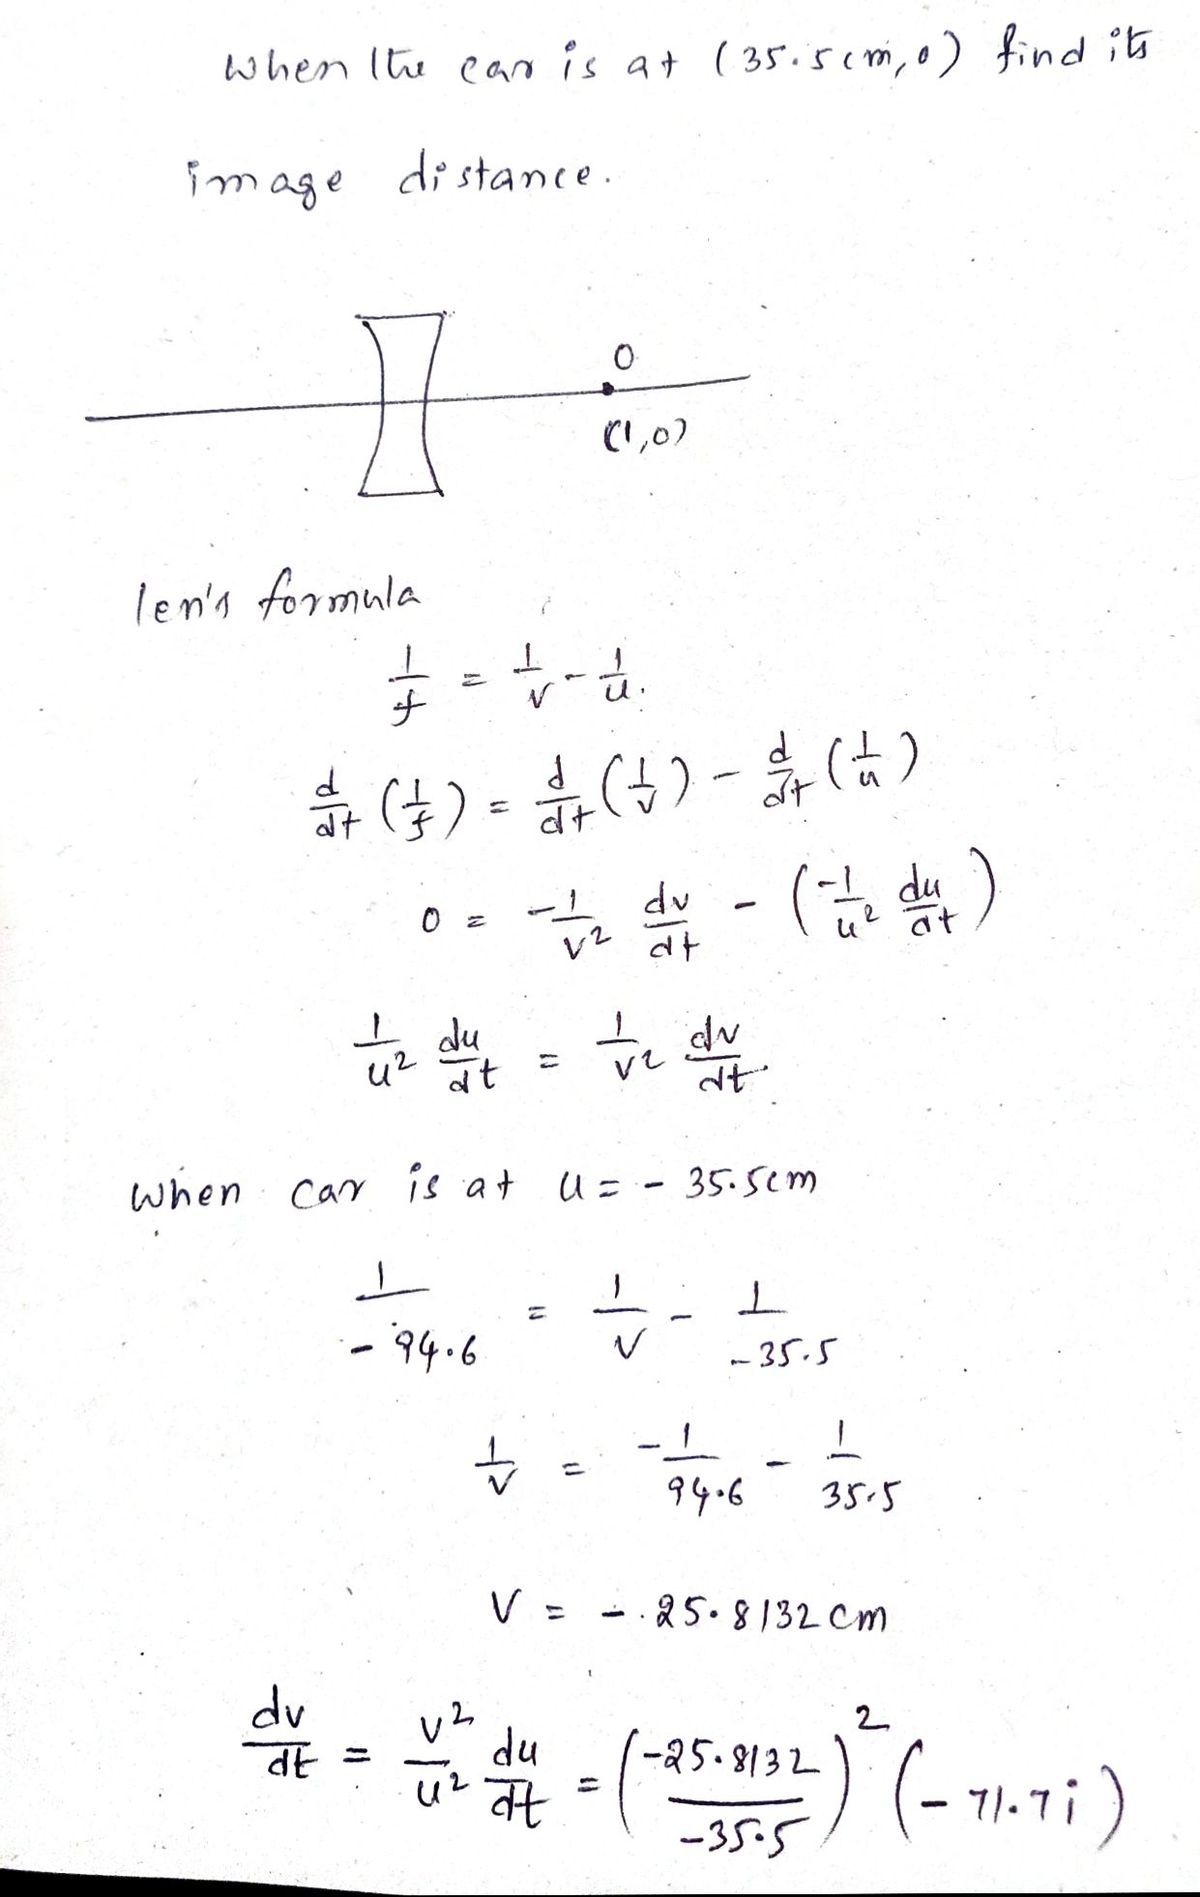 When the car is at (35.5cm,0) find its
image distance.
O
(1,0)
len's formula
1/f = 1/v - 1/u.
d/dt (1/f) = d/dt (1/v) - d/dt (1/u)
0 = -1/v2 dv/dt - (-1/u2 du/dt)
1/u2 du/dt = 1/v2 dv/dt.
when car is at u = - 35.5cm
1/-94.6 = 1/v - 1/-35.5
1/v = -1/94.6 - 1/35.5
V = - 25.8132 cm
dv/dt = v2/u2 du/dt = (-25.8132/-35.5)2 (- 71.7i)